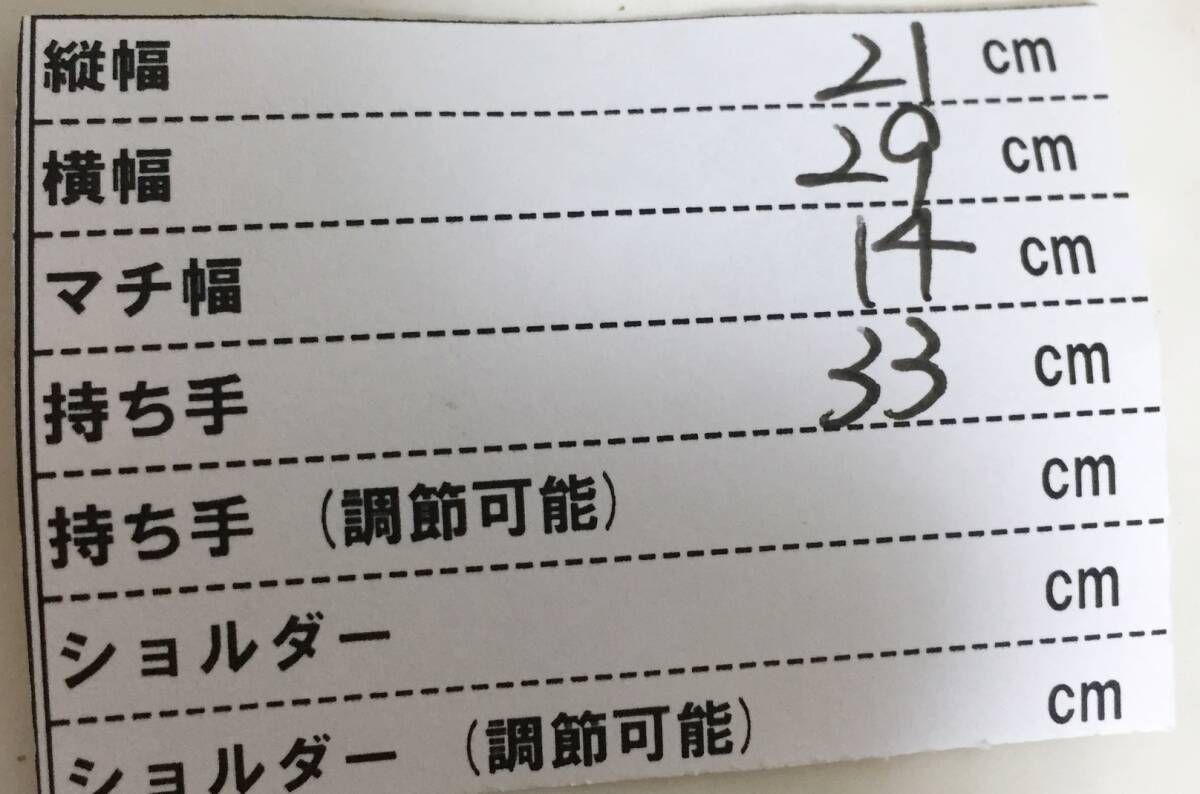 縦幅 21 cm
横幅 29 cm
マチ幅 14 cm
持ち手 33 cm
持ち手 (調節可能) cm
ショルダー cm
ショルダー (調節可能) cm